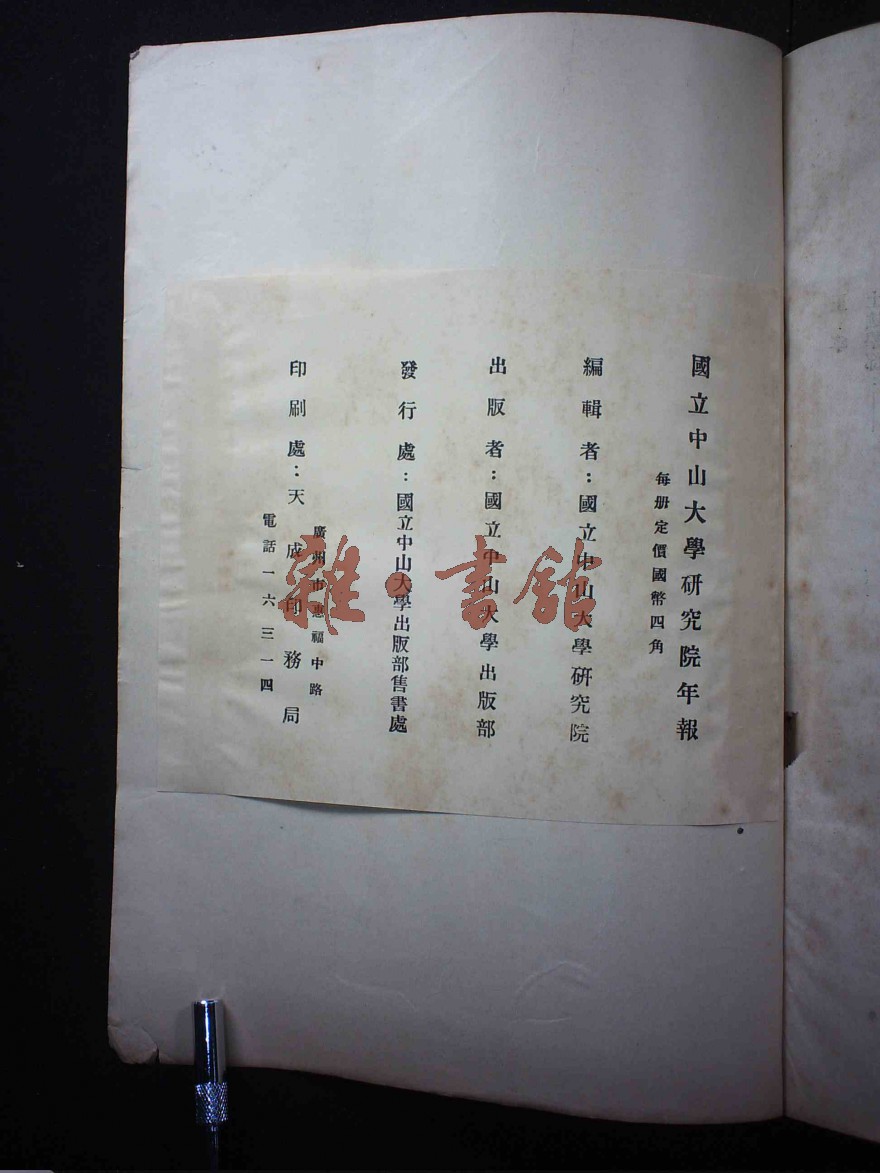 國立中山大學研究院年報
每册定價國幣四角
編輯者：國立中山大學研究院
出版者：國立中山大學出版部
發行處：國立中山大學出版部售書處
印刷處：天成印務局
廣州市惠福中路
電話一六三一四
雜·書館